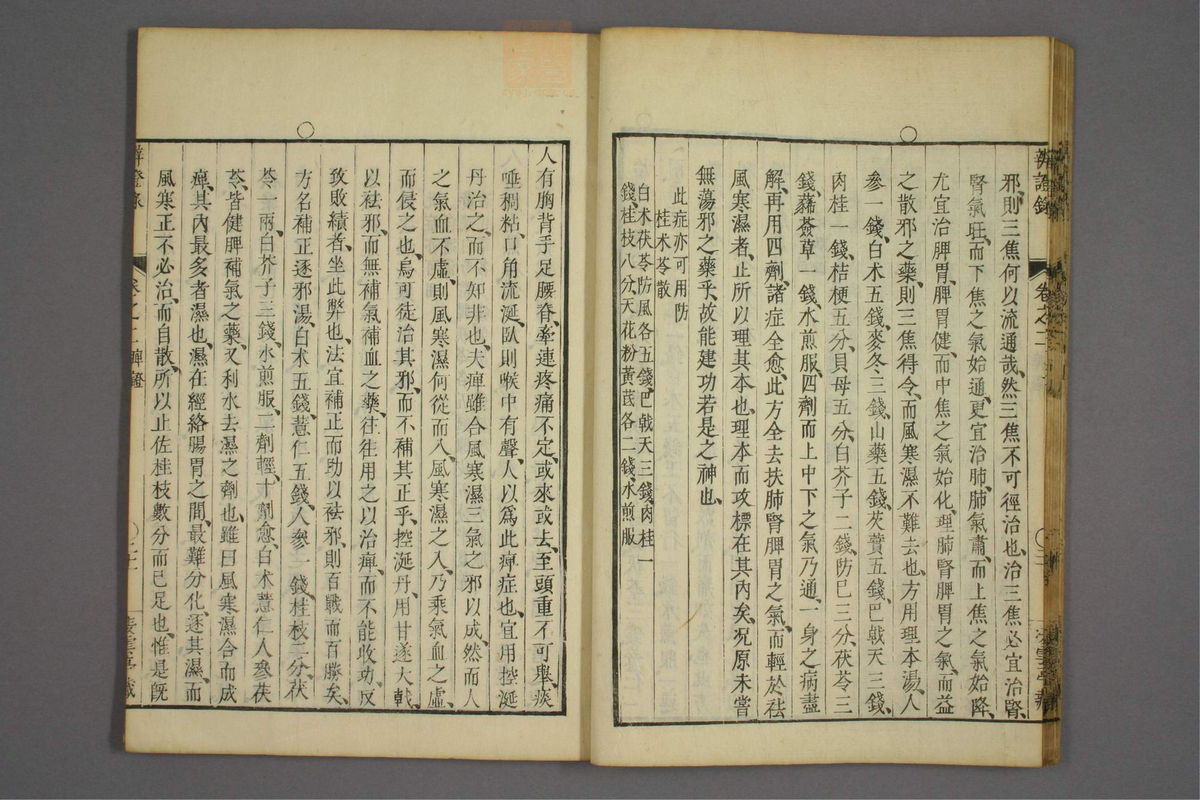 辨證錄 卷之二
邪、則三焦何以流通哉、然三焦不可徑治也、治三焦必宜治腎、
腎氣旺、而下焦之氣始通、更宜治肺、肺氣肅、而上焦之氣始降、
尤宜治脾胃、脾胃健、而中焦之氣始化、理肺腎脾胃之氣、而益
之散邪之藥、則三焦得令、而風寒濕不難去也、方用理本湯、人
參一錢、白术五錢、麥冬三錢、山藥五錢、芡實五錢、巴戟天三錢、
肉桂一錢、桔梗五分、貝母五分、白芥子二錢、防巳三分、茯苓三
錢、豨薟草一錢、水煎服、四劑而上中下之氣乃通、一身之病盡
解、再用四劑、諸症全愈、此方全去扶肺腎脾胃之氣、而輕於祛
風寒濕者、止所以理其本也、理本而攻標在其內矣、况原未嘗
無蕩邪之藥乎、故能建功若是之神也、
此症亦可用防
桂术苓散
白术茯苓防風各五錢、巴戟天三錢、肉桂一
錢、桂枝八分、天花粉黃茋各二錢、水煎服
人有胸背手足腰脊、牽連疼痛不定、或來或去、至頭重不可舉、痰
唾稠粘、口角流涎、臥則喉中有聲、人以爲此痺症也、宜用控涎
丹治之、而不知非也、夫痺雖合風寒濕三氣之邪以成、然而人
之氣血不虛、則風寒濕何從而入、風寒濕之入、乃乘氣血之虛、
而侵之也、烏可徒治其邪、而不補其正乎、控涎丹、用甘遂大戟、
以祛邪、而無補氣補血之藥、往往用之以治痺、而不能收功、反
致敗績者、坐此弊也、法宜補正而助以祛邪、則百戰而百勝矣、
方名補正逐邪湯、白术五錢、薏仁五錢、人參一錢、桂枝三分、茯
苓一兩、白芥子三錢、水煎服、二劑輕、十劑愈、白术薏仁人參茯
苓、皆健脾補氣之藥、又利水去濕之劑也、雖曰風寒濕合而成
痺、其內最多者濕也、濕在經絡腸胃之間、最難分化、逐其濕、而
風寒正不必治、而自散、所以止佐桂枝數分而已足也、惟是旣
辨證錄 卷之二 痺證